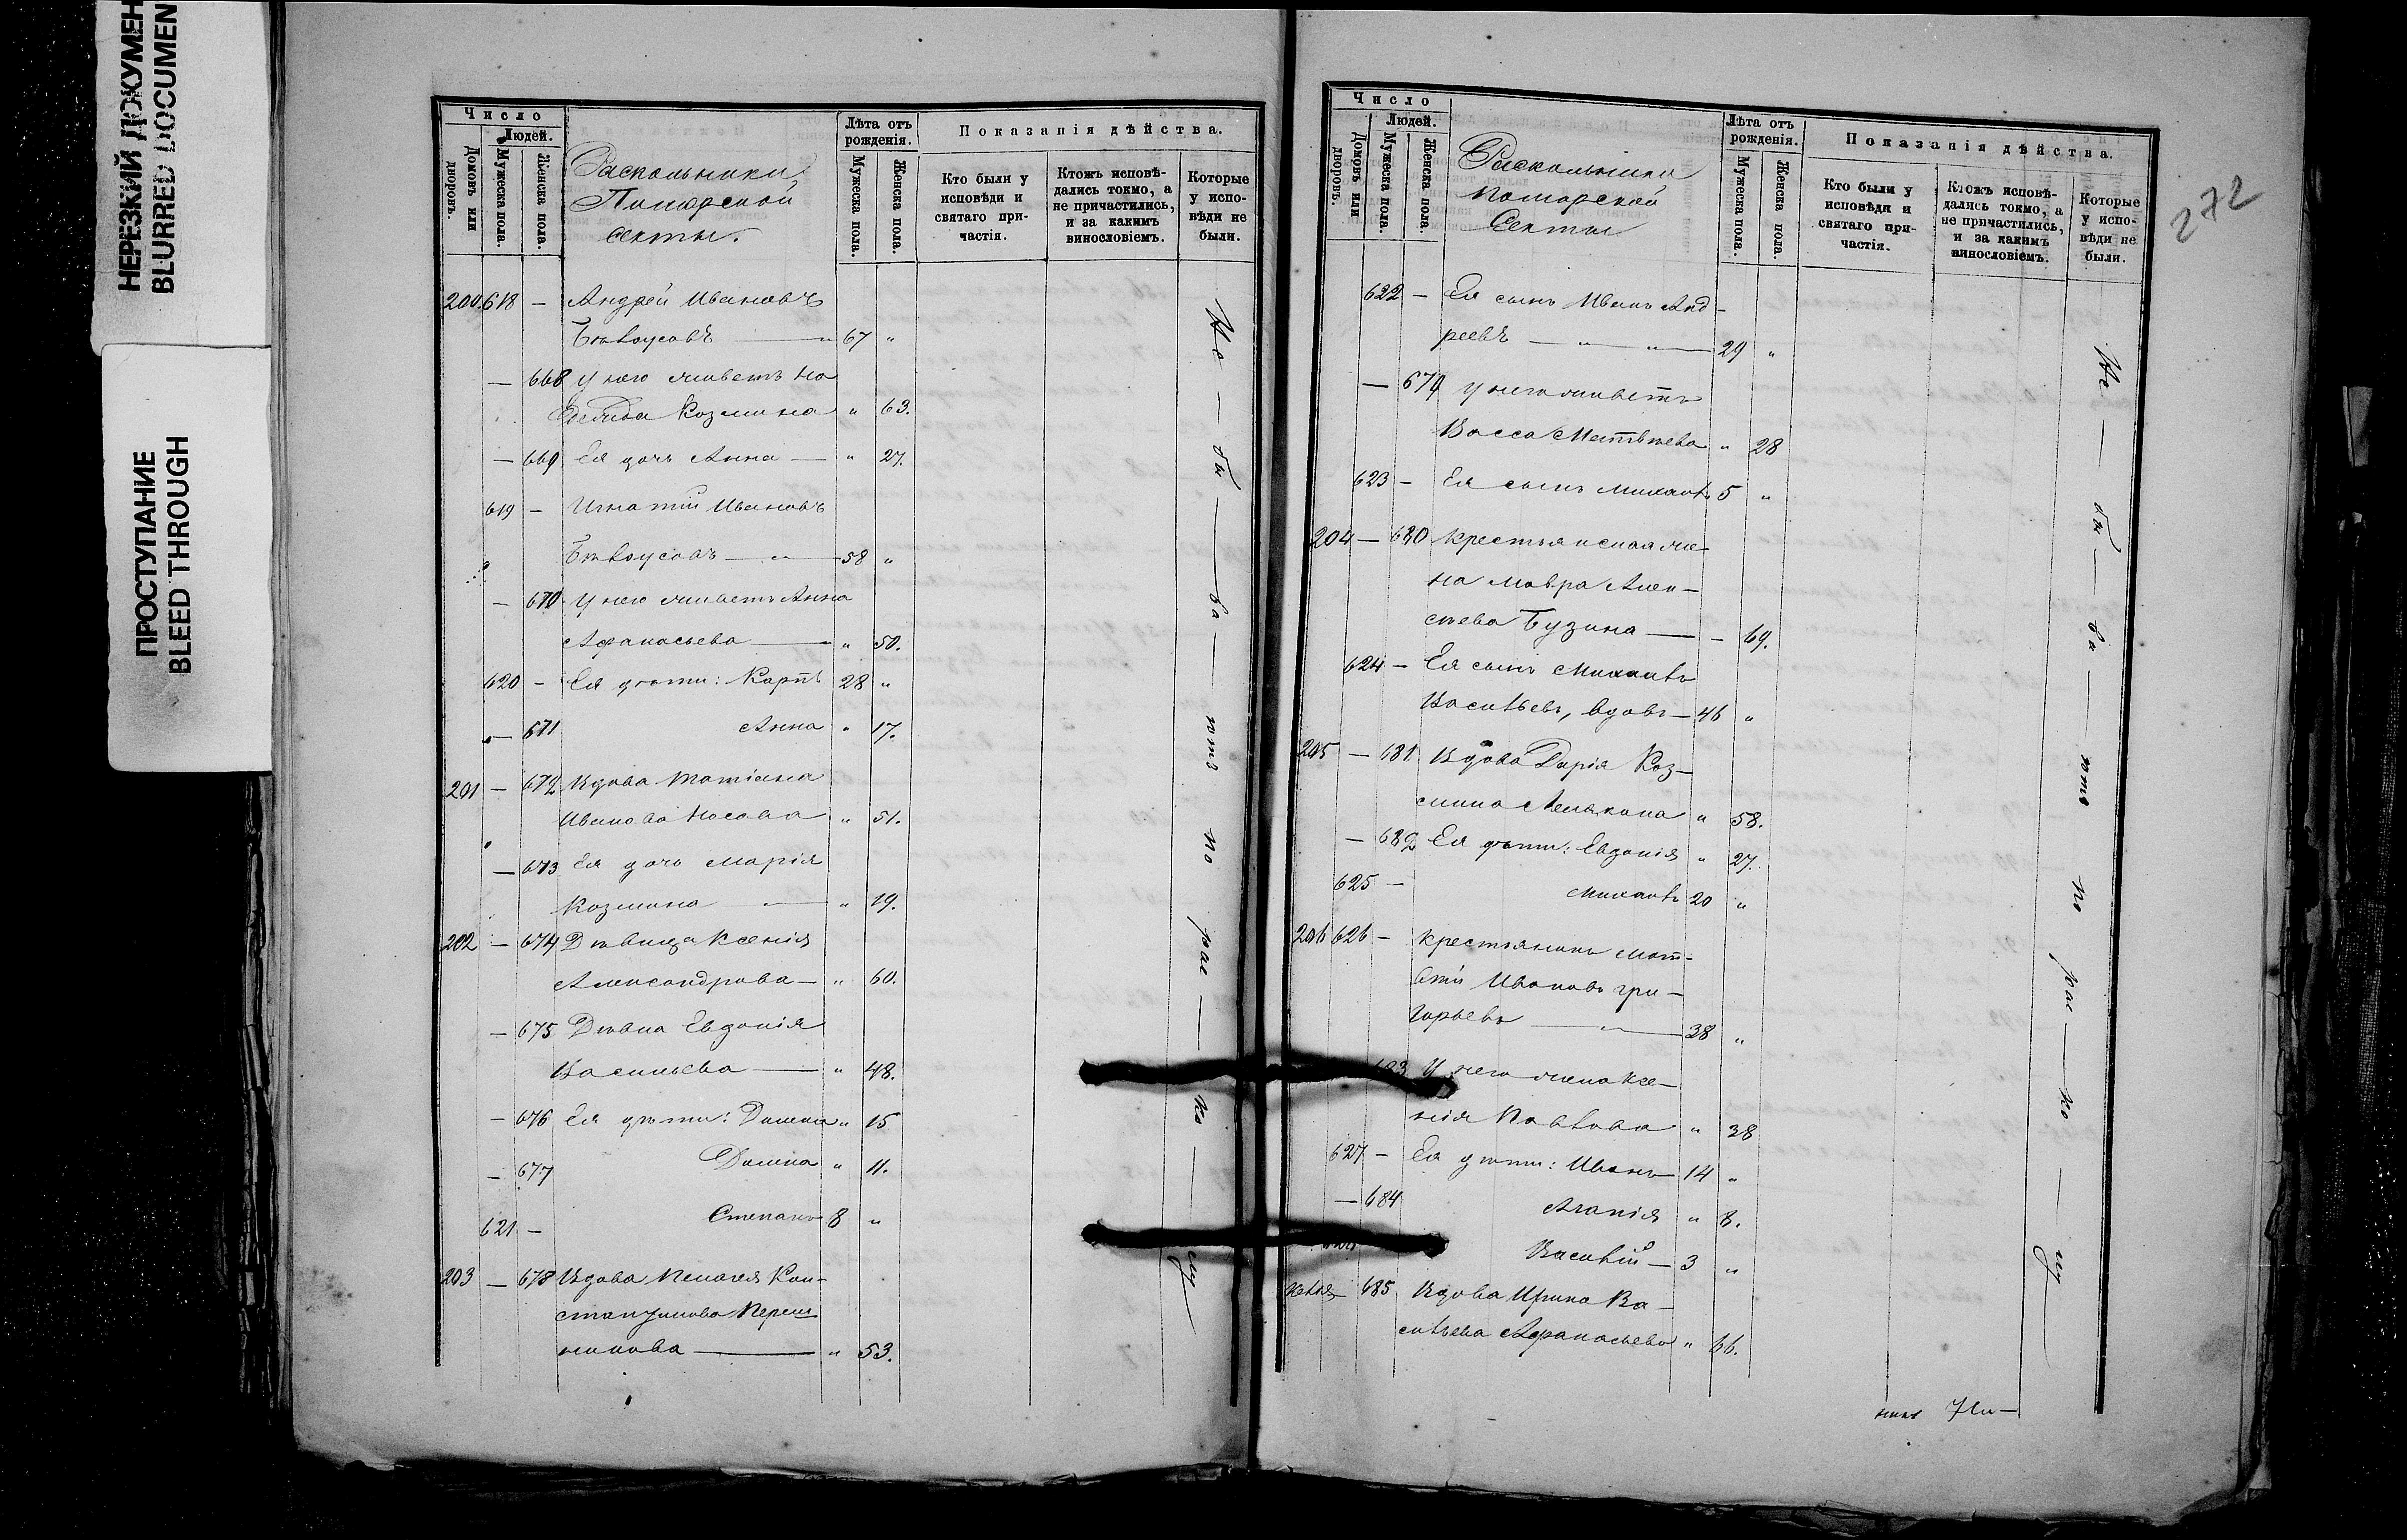 НЕРЕЗКИЙ ДОКУМЕН
BLURRED DOCUMEN
ПРОСТУПАНИЕ
BLEED THROUGH
Число
Людей.
Домовъ или дворовъ.
Мужеска пола.
Женска пола.
Раскольники
Поморской
секты.
Лѣта отъ рожденія.
Мужеска пола.
Женска пола.
Показанія дѣйства.
Кто были у исповѣди и святаго причастія.
Ктожъ исповѣдались токмо, а не причастились, и за какимъ винословіемъ.
Которые у исповѣди не были.
200. 618 — Андрей Ивановъ
Бѣлоусовъ — 67 "
— 668 У него живетъ На
Козмина " 63.
— 669 Ея дочь Анна — " 27.
619 — Игнатій Ивановъ
Бѣлоусовъ — " — 58 "
— 670 У него живетъ Анна
Афанасьева — " 50.
620 — Ея дѣти: Карпъ 28 "
— 671 Анна " 17.
201 — 672 Вдова Татіана
Иванова Носова " 51.
— 673 Ея дочь Марія
Козмина — " 19.
202 — 674 Дѣвица Ксенія
Александрова — " 60.
— 675 Дѣвка Евдокія
Васильева — " 48.
— 676 Ея дѣти: Домна " 15
— 677 Домна " 11.
621 — Степанъ 8 "
203 — 678 Вдова Пелагея Кон-
стантинова
никова — " 53.
Не — бы — ва — ютъ по рас — ко — лу
Число
Людей.
Домовъ или дворовъ.
Мужеска пола.
Женска пола.
Раскольники
Поморской
Секты
Лѣта отъ рожденія.
Мужеска пола.
Женска пола.
Показанія дѣйства.
Кто были у исповѣди и святаго причастія.
Ктожъ исповѣдались токмо, а не причастились, и за какимъ винословіемъ.
Которые у исповѣди не были.
272
622 — Ея сынъ Иванъ Анд-
реевъ — " — " — 29 "
— 679 У него живетъ
Васса Матѣвева " 28
623 — Ея сынъ Михаилъ 5 "
204 — 680 Крестьянская же-
на Мавра Алек-
сѣева Бузина — — 69.
624 — Ея сынъ Михаилъ
Васильевъ, вдовъ — 46 "
205 — 681 Вдова Дарія Коз-
мина " 58.
— 682 Ея дѣти: Евдокія " 27.
625 — Михаилъ 20 "
206 626 — Крестьянинъ Мат-
вѣй Ивановъ Гри-
горьевъ — " — 38 "
683 У него жена Ксе-
нія Павлова " 38
627 — Ея дѣти: Иванъ — 14 "
— 684 Агапія " 8.
Василій — 3 "
685 Вдова Ирина Ва-
сильева Афанасьева " 66.
Не — бы — ва — ютъ по рас — ко — лу